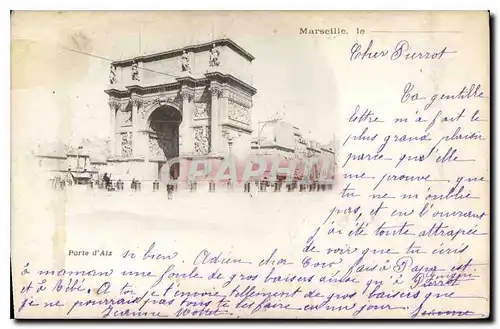 Marseille, le
Cher Pierrot
Ta gentille
lettre m'a fait le
plus grand plaisir
parce qu'elle
me prouve que
tu ne m'oublie
pas, et en l'ouvrant
j'ai été toute attrapée
de voir que tu écris
CPARAMA
Porte d'Aix
si bien. Adieu cher Coco fais à Papa
à maman une foule de gros baisers ainsi qu'à Pierrot
et à Bébé. A toi je t'envoie tellement de gros baisers que
je ne pourrais pas tous te les faire en un jour.
Jeanne